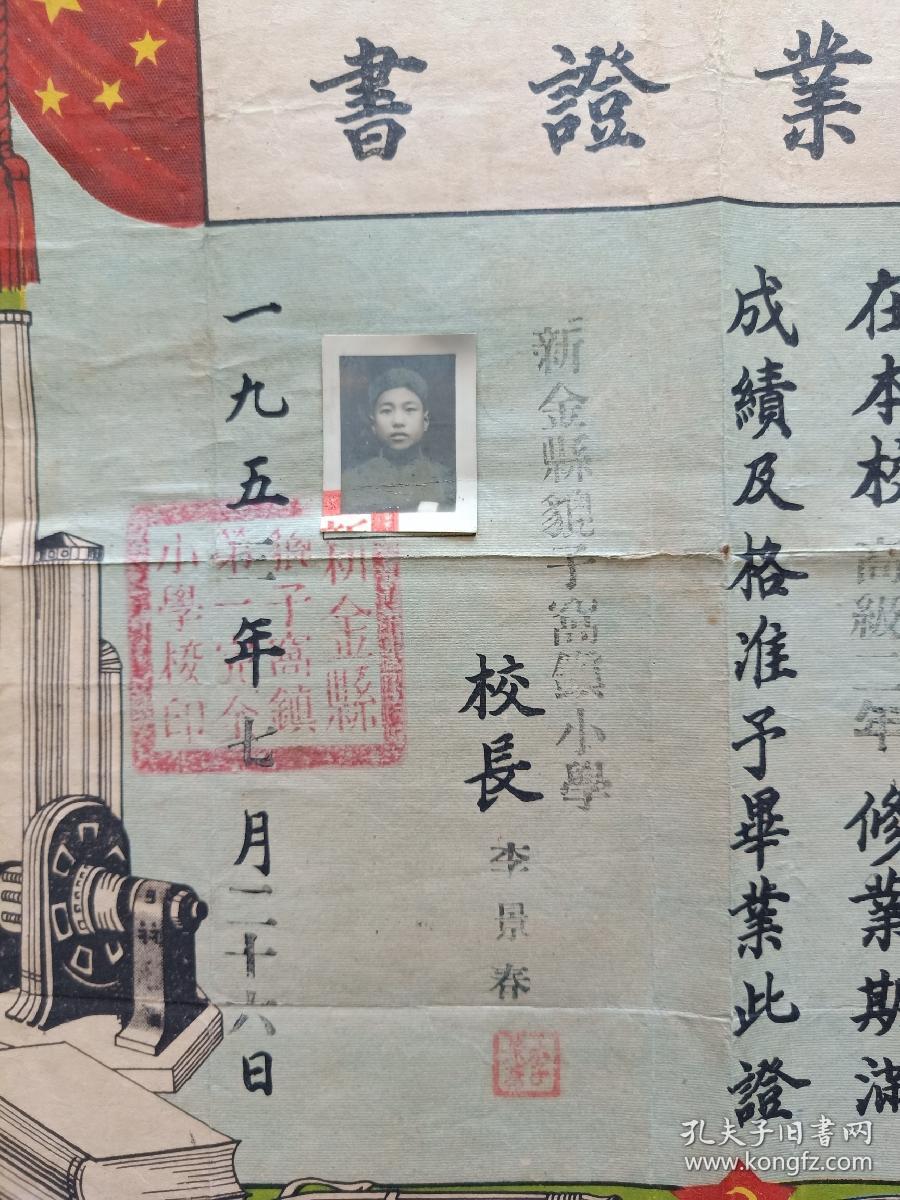 業證書
在本校高級二年修業期滿
成績及格准予畢業此證
新金縣貔子窩鎮小學
校長 李景春
一九五三年七月二十六日
新金縣
貔子窩鎮
第一完全
小學校印
孔夫子旧书网
www.kongfz.com